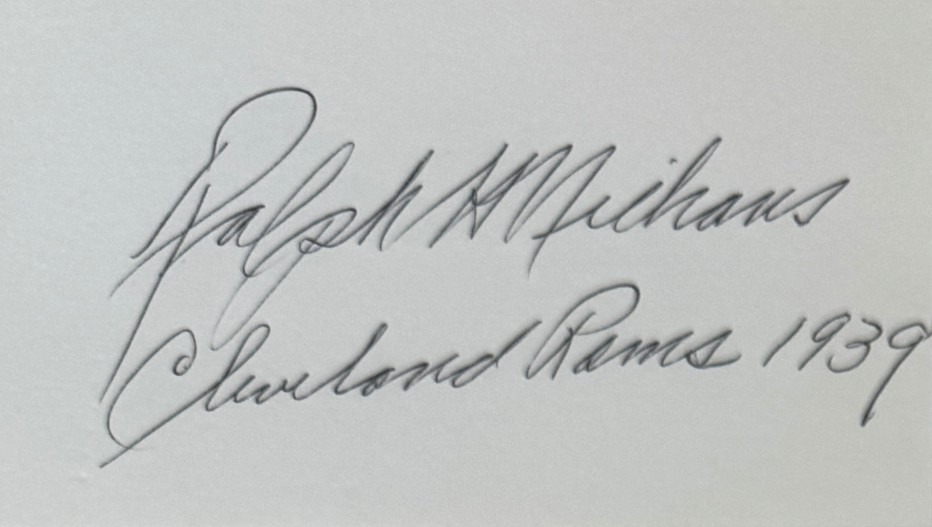 Ralph H Niehaus
Cleveland Rams 1939